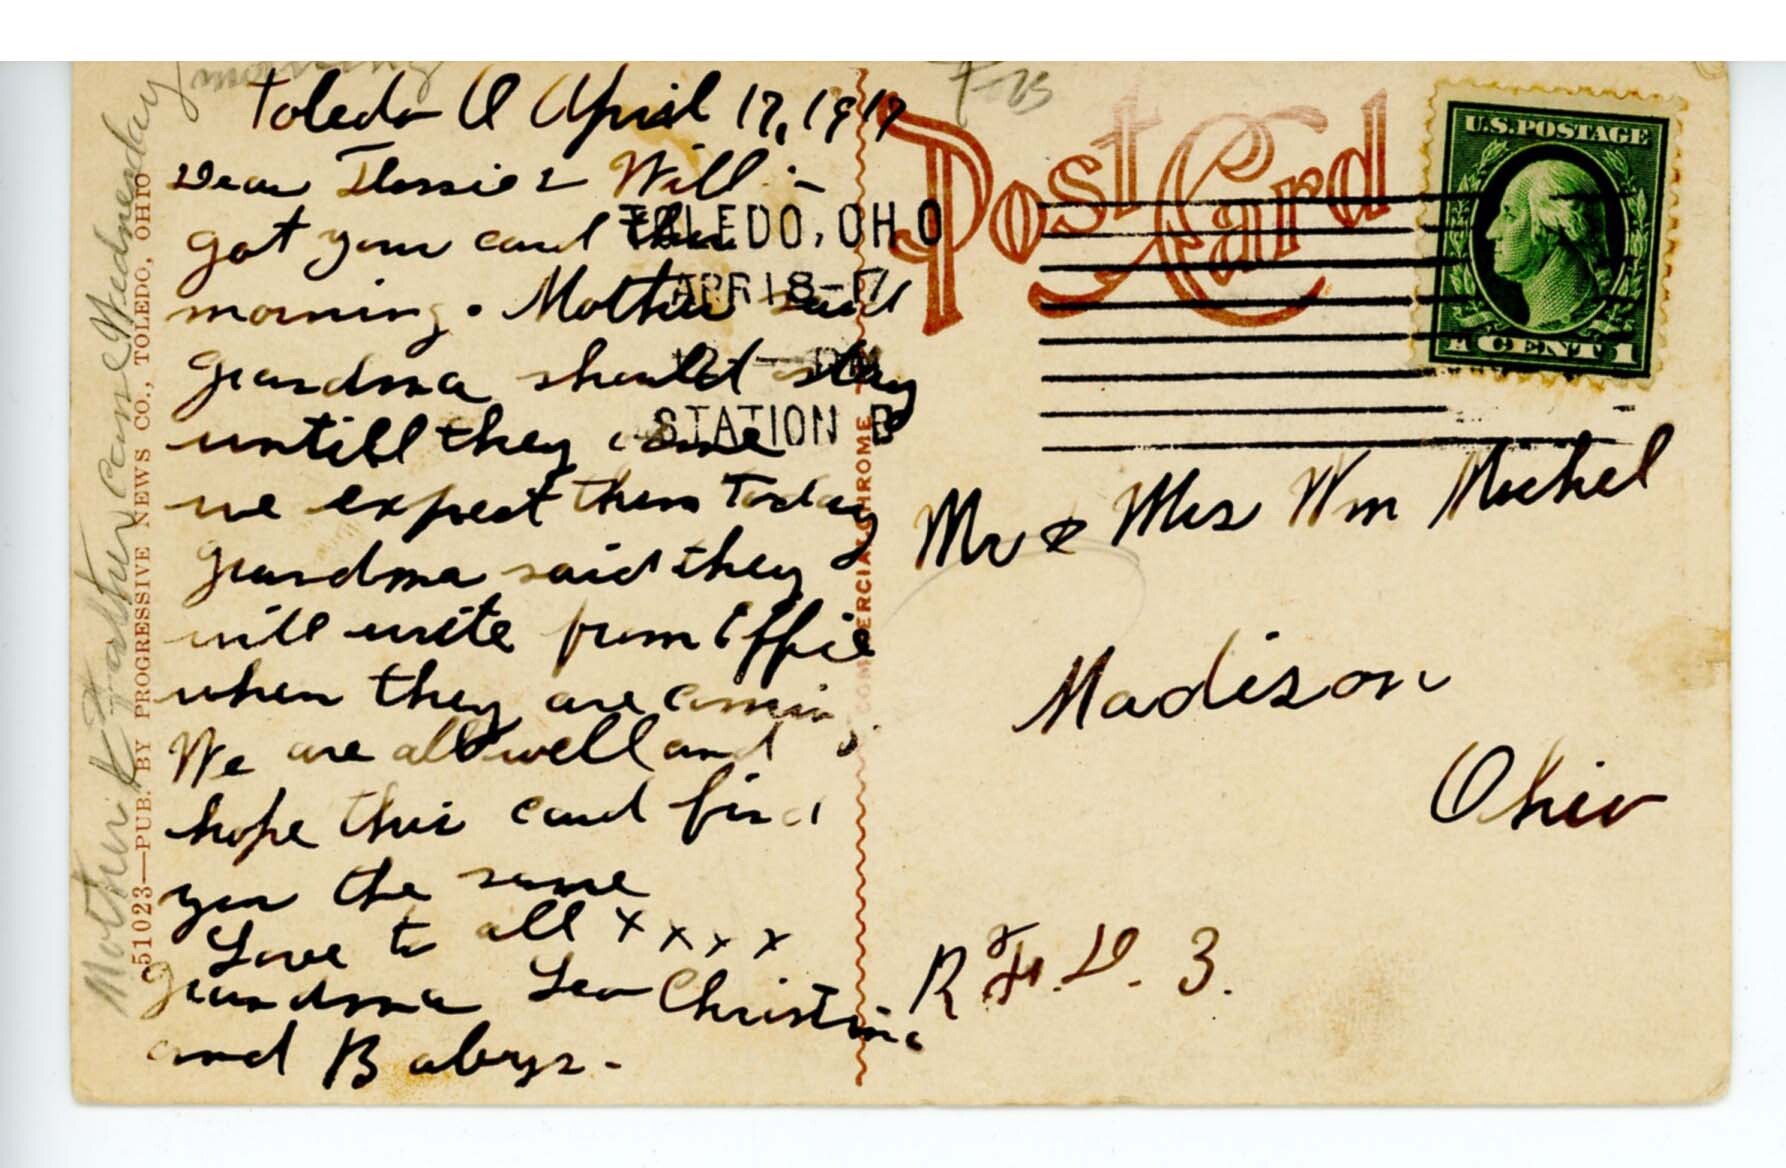 Toledo O April 17, 1917
Dear Flossie & Will :-
got your card this
morning. Mother said
Grandma should stay
untill they come
we expect them Today
Grandma said they
will write from Effie
when they are coming.
We are all well and
hope this card find
you the same
Love to all x x x x
Grandma Leo Christina
and Babys.-
Mother & Father came Wednesday
morning
51023—PUB. BY PROGRESSIVE NEWS CO., TOLEDO, OHIO
COMMERCIALCHROME
TOLEDO, OHIO
APR 18-17
12 - PM
STATION B
Post Card
U.S. POSTAGE
1 CENT 1
Mr & Mrs Wm Michel
Madison
Ohio
R.F.D. 3.